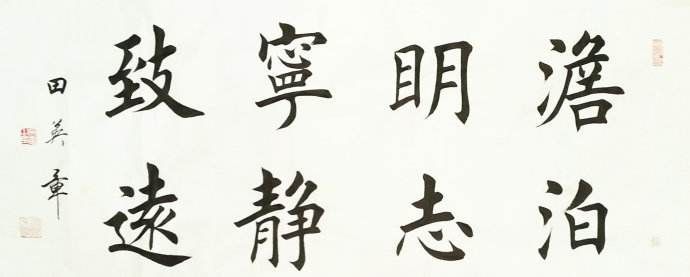 澹泊
明志
寧静
致遠
田英章